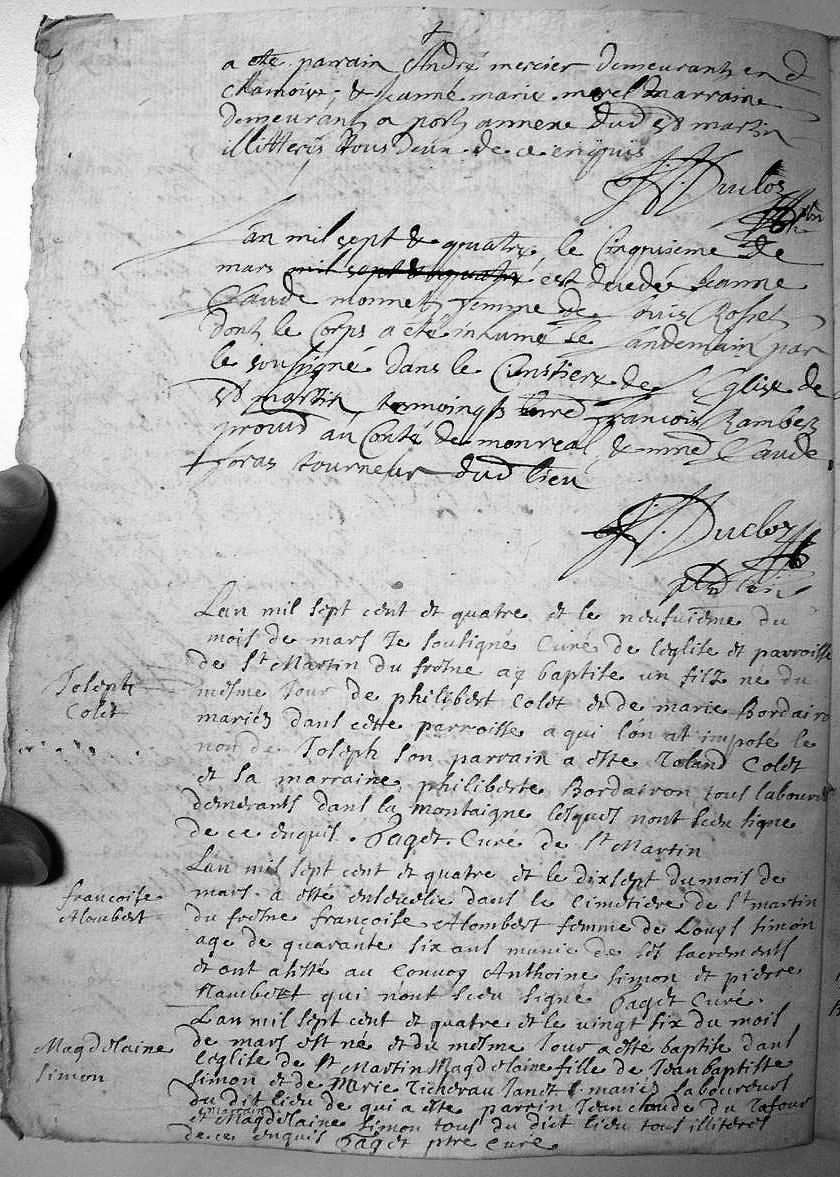 a ete parrain André mercier demeurant en
Chamoise; & Jeanne marie morel marraine
demeurant a port annexe dud st martin
illitterés tous deux de ce enquis
Duclos
Lan mil sept & quatre, le Cinquiesme de
mars mil sept & quatre est decedée Jeanne
Claude monnet femme de Louis Rosset
dont le Corps a eté inhumé le landemain par
le sousigné dans le Cimitiere de l'Eglise de
st martin, temoingts françois Rambez
au Conté de monreal, & Claude
foras tourneur dud lieu
Duclos
Lan mil sept cent et quatre et le neufvieme du
mois de mars Je soutigné Curé de leglise et parroisse
de st Martin du frosne ay baptise un filz né du
mesme Jour de philibert Colet et de marie Bordairon
mariés dans cette parroisse a qui l'on at imposé le
nom de Joseph son parrain a este Roland Colet
et sa marraine philiberte Bordairon tous laboureurs
demerants dans la montaigne lesques nont sceu signe
de ce enquis. Paget Curé de st Martin
Joseph
Colet
Lan mil sept cent et quatre et le dixsept du mois de
mars a esté ensevelie dans le Cimetiere de st martin
du frosne françoise Alombert femme de Louys simon
age de quarante six ans munie de ses sacrements
et ont assisté au Convoy Anthoine simon et pierre
Rambert qui n'ont sceu signé Paget Curé.
francoise
Alombert
Lan mil sept cent et quatre et le vingt six du mois
de mars est né et du mesme Jour a este baptise dans
leglise de st Martin Magdelaine fille de Jean baptiste
simon et de Marie Ticherau Janet mariés laboureurs
du dit lieu de qui a este parrin Jean du
marraine
et Magdelaine simon tous du dict lieu tous illiteres
de ce enquis Paget ptre Curé
Magdelaine
simon